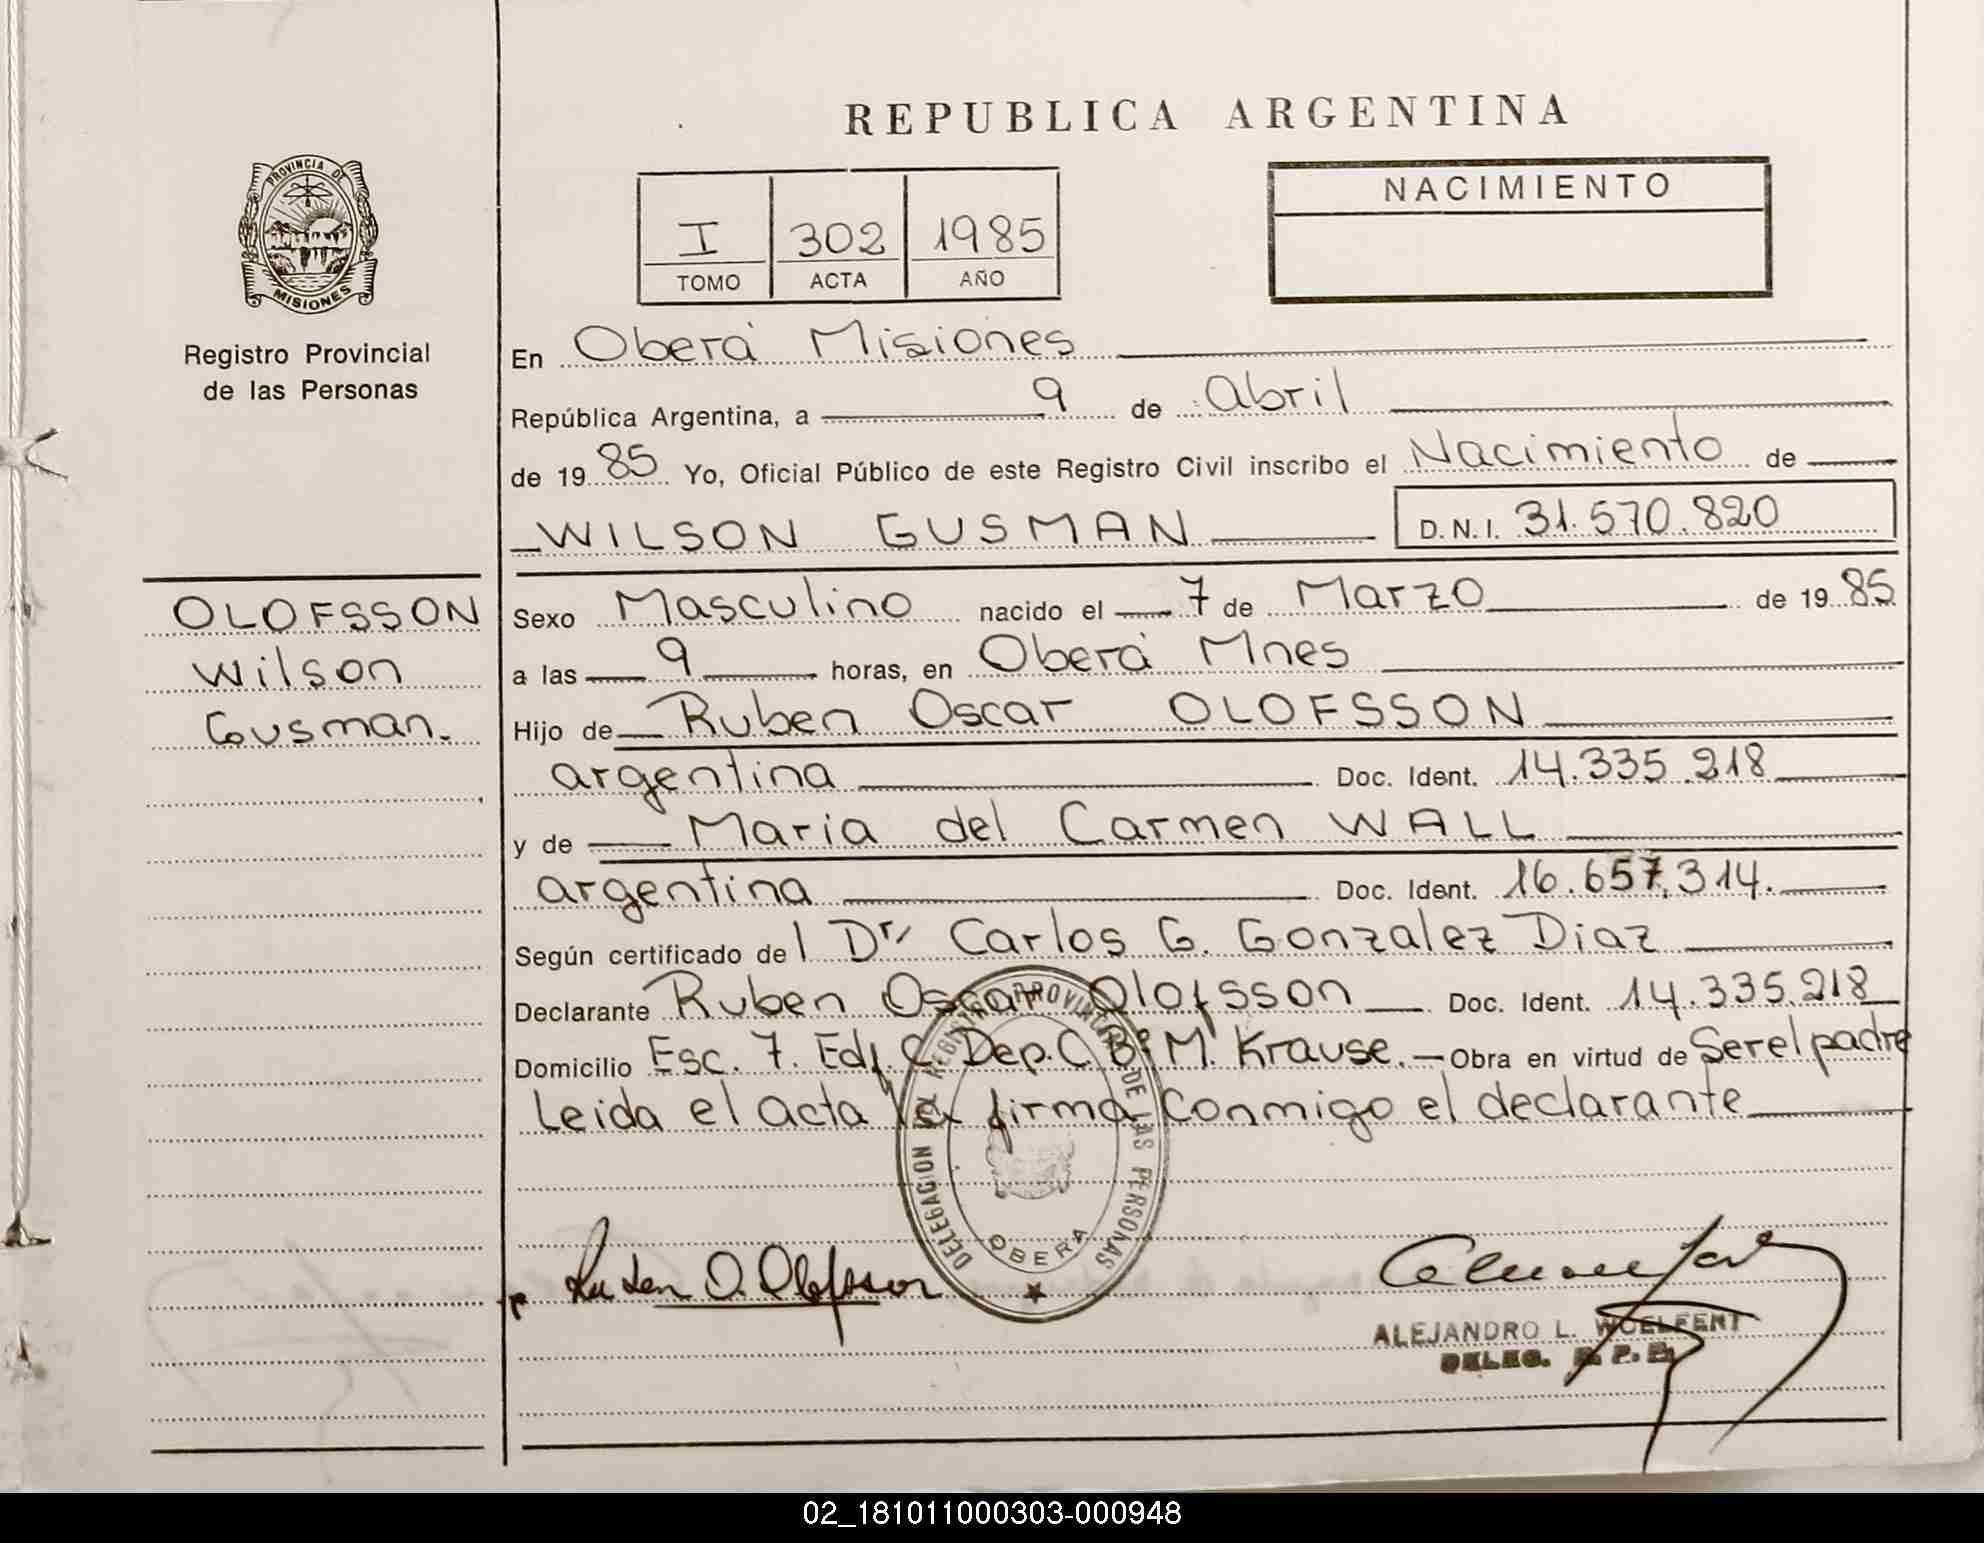 REPUBLICA ARGENTINA
PROVINCIA DE
MISIONES
Registro Provincial
de las Personas
I 302 1985
TOMO ACTA AÑO
NACIMIENTO
En Oberá Misiones
República Argentina, a 9 de Abril
de 1985 Yo, Oficial Público de este Registro Civil inscribo el Nacimiento de
WILSON GUSMAN D.N.I. 31.570.820
OLOFSSON
Wilson
Gusman.
Sexo Masculino nacido el 7 de Marzo de 1985
a las 9 horas, en Oberá Mnes
Hijo de Ruben Oscar OLOFSSON
argentina Doc. Ident. 14.335.218
y de Maria del Carmen WALL
argentina Doc. Ident. 16.657.314.
Según certificado del Dr. Carlos G. Gonzalez Diaz
Declarante Ruben Oscar Olofsson Doc. Ident. 14.335.218
Domicilio Esc. 7. Edf. C. Dep. C. Bº M. Krause. Obra en virtud de Ser el padre
Leida el acta la firma conmigo el declarante
DELEGACION DEL REGISTRO PROVINCIAL DE LAS PERSONAS
OBERA
Ruben O. Olofsson
ALEJANDRO L. WOELFERT
DELEG. R. P. P.
02_181011000303-000948